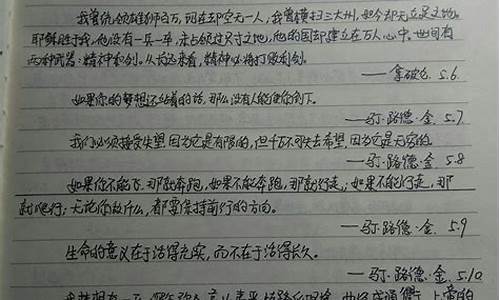 我曾统领雄师百万,现在却空无一人,我曾横扫三大州,如今却无立足之地。
耶稣胜于我,他没有一兵一卒,未占领过尺寸之地,他的国却建立在万人心中。世间有
两种武器:精神和剑。从长远来看,精神必将打败利剑。
——拿破仑 5.6
如果你的梦想还站着的话,那么没有人能使你倒下。
——马丁·路德·金 5.7
我们必须接受失望,因为它是有限的,但千万不可失去希望,因为它是无穷的。
——马丁·路德·金 5.8
如果你不能飞,那就奔跑,如果不能奔跑,那就行走;如果不能行走,那
就爬行;无论你做什么,都要保持前行的方向。
——马丁·路德·金 5.9
生命的意义在于活得充实,而不在于活得长久。
——马丁·路德·金 5.10